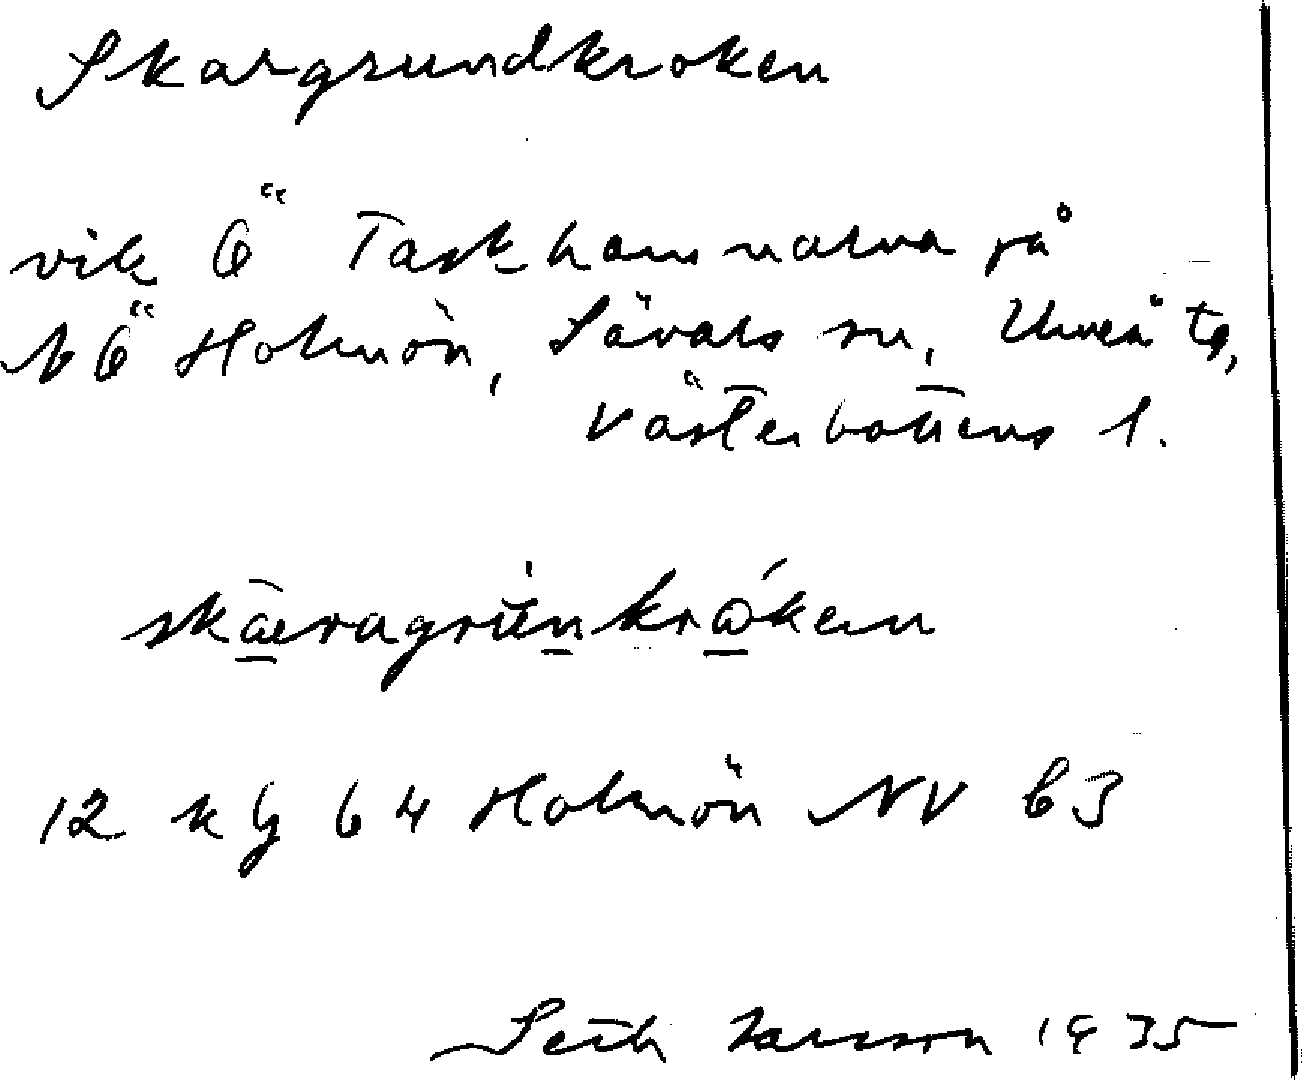 Skargrundkroken
vik Ö Taskhamnarna på
NÖ Holmön, Sävars sn, Umeå tg,
Västerbottens l.
skǣragrŭnkrω̄́ken
12 kg 64 Holmön NV b3
Seth Larsson 1935